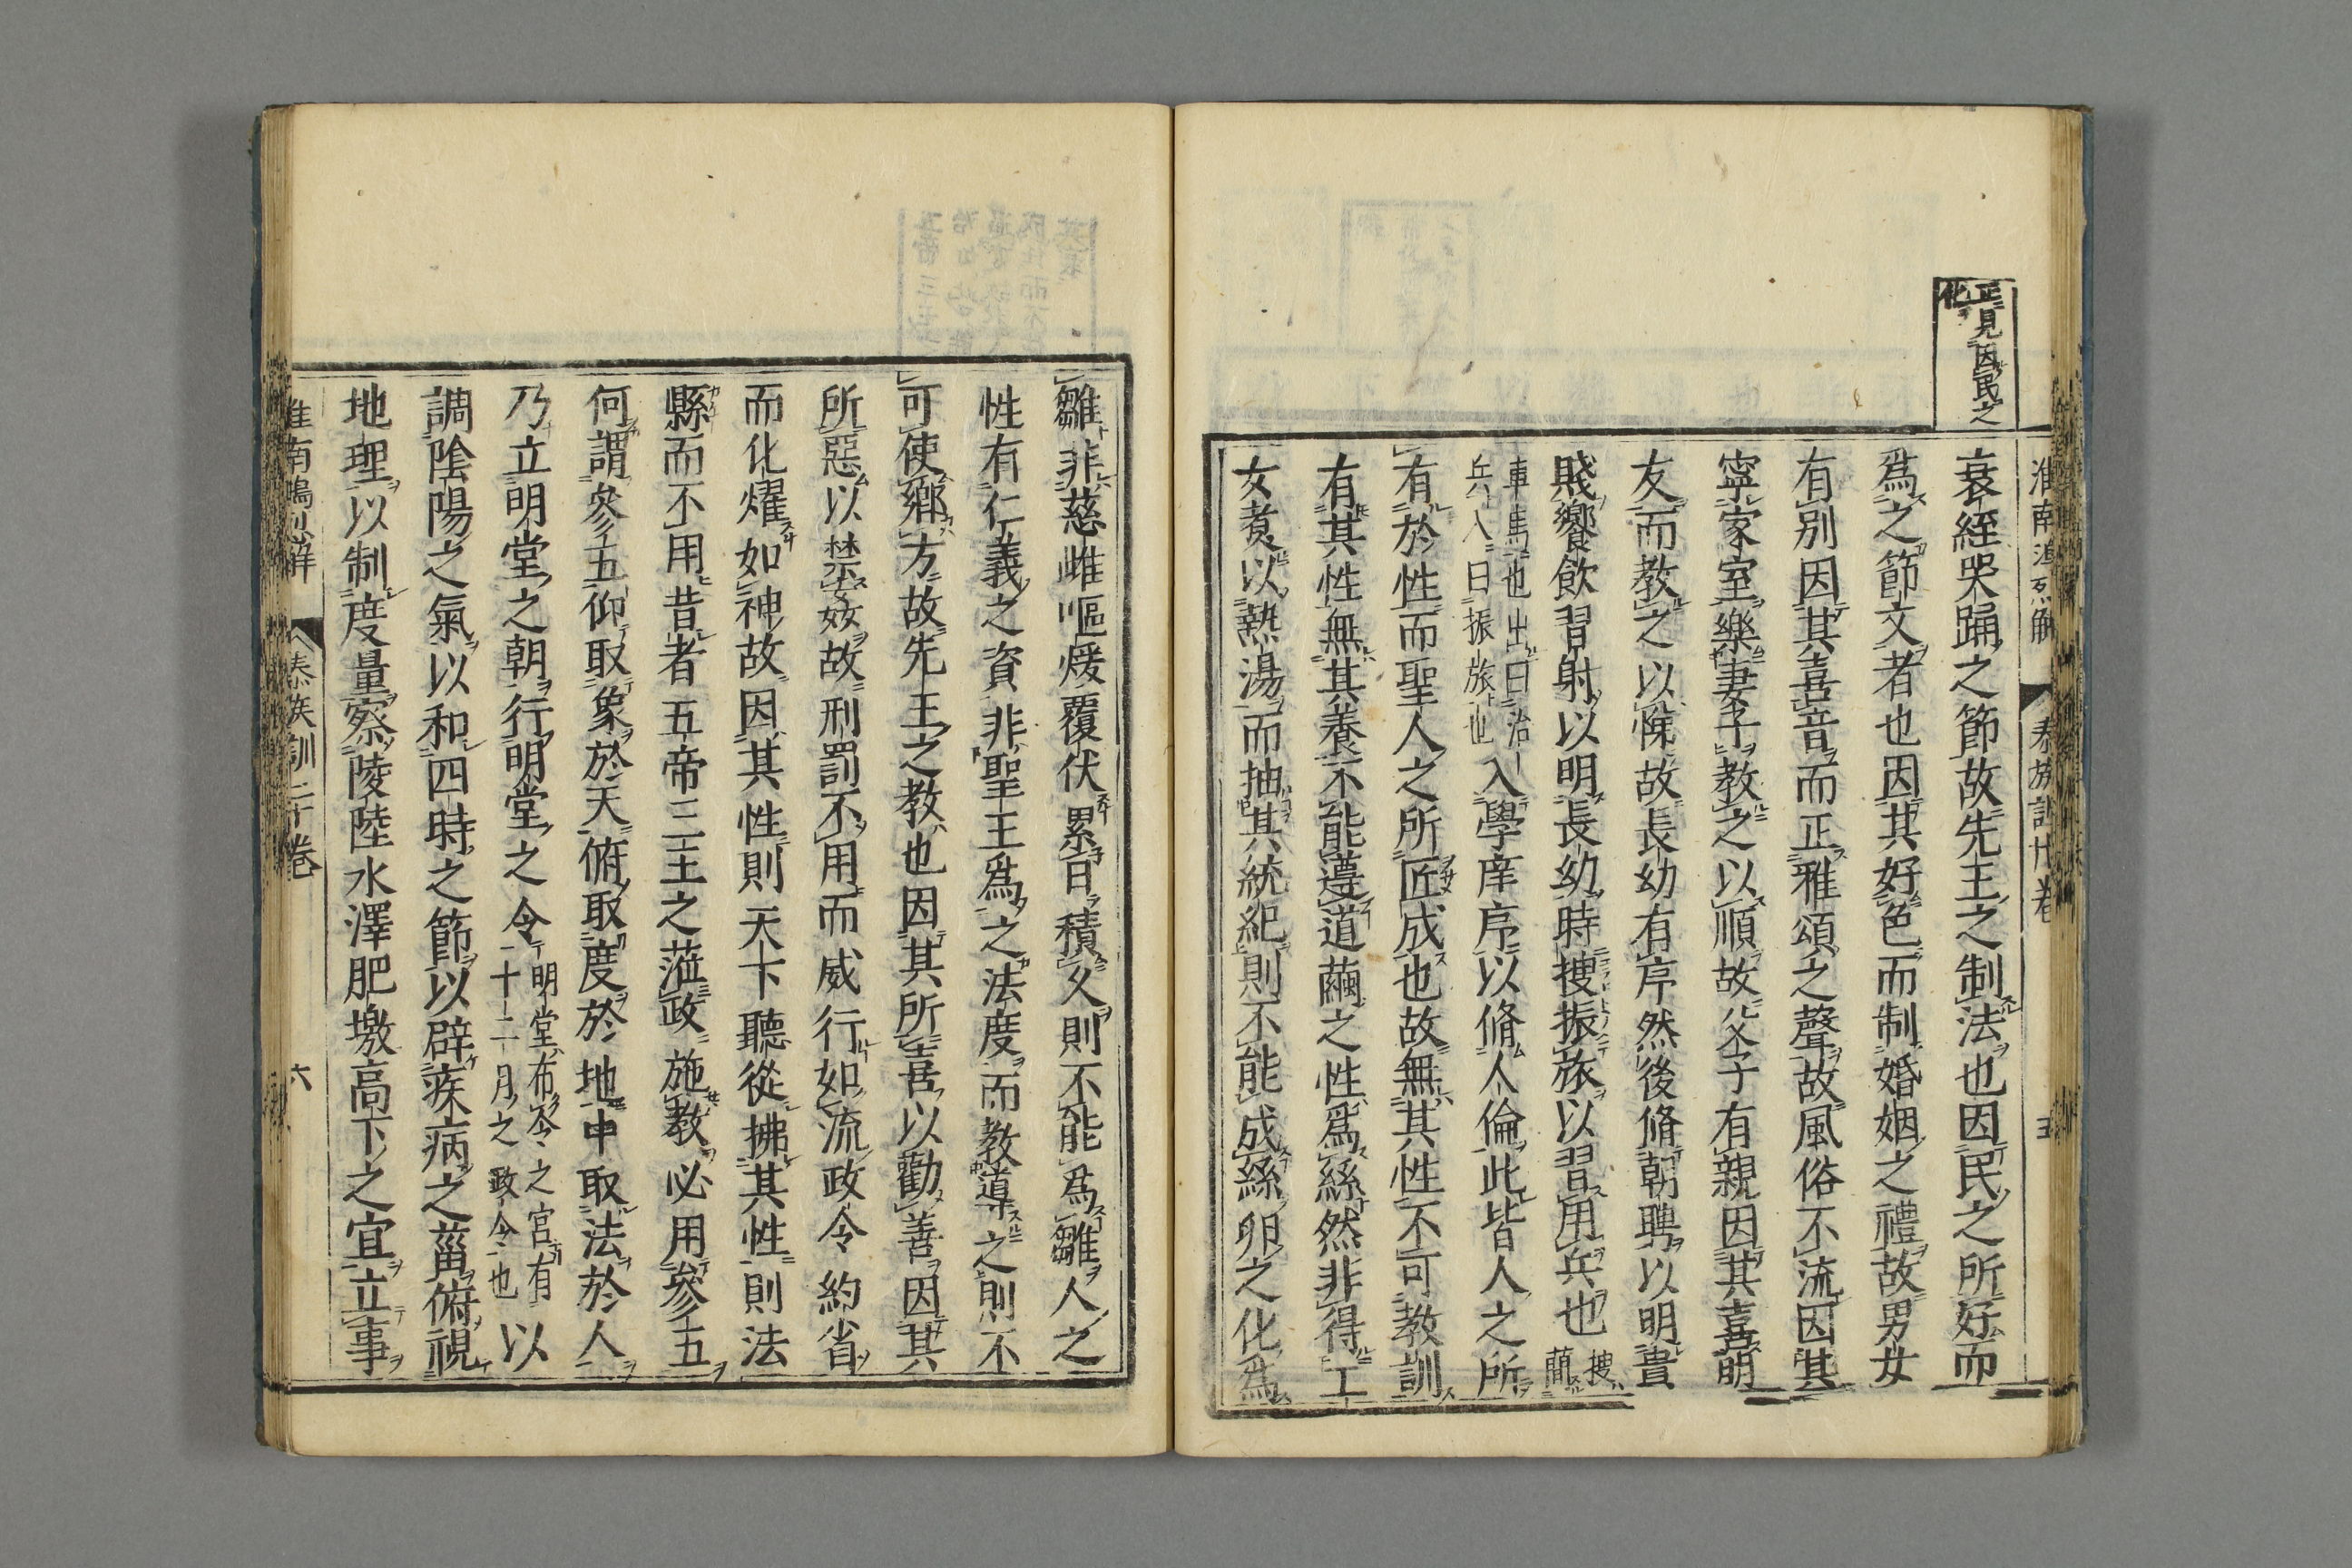 正見因民之
化
淮南鴻烈解 泰族訓廿卷 五
衰絰哭踊之節故先王之制法也因民之所好而
爲之節文者也因其好色而制婚姻之禮故男女
有別因其喜音而正雅頌之聲故風俗不流因其
寧家室樂妻子教之以順故父子有親因其喜朋
友而教之以悌故長幼有序然後脩朝聘以明貴
賤饗飲習射以明長幼時搜振旅以習用兵也搜簡
車馬也出曰治
兵入曰振旅也入學庠序以脩人倫此皆人之所
有於性而聖人之所匠成也故無其性不可教訓
有其性無其養不能遵道繭之性爲絲然非得工
女煑以熱湯而抽其統紀則不能成絲卵之化爲
雛非慈雌嘔煖覆伏累日積久則不能爲雛人之
性有仁義之資非聖王爲之法度而教導之則不
可使鄉方故先王之教也因其所喜以勸善因其
所惡以禁姦故刑罰不用而威行如流政令約省
而化燿如神故因其性則天下聽從拂其性則法
縣而不用昔者五帝三王之蒞政施教必用參五
何謂參五仰取象於天俯取度於地中取法於人
乃立明堂之朝行明堂之令明堂布令之宮有
十二月之政令也以
調陰陽之氣以和四時之節以辟疾病之菑俯視
地理以制度量察陵陸水澤肥墽高下之宜立事
淮南鴻烈解 泰族訓二十卷 六